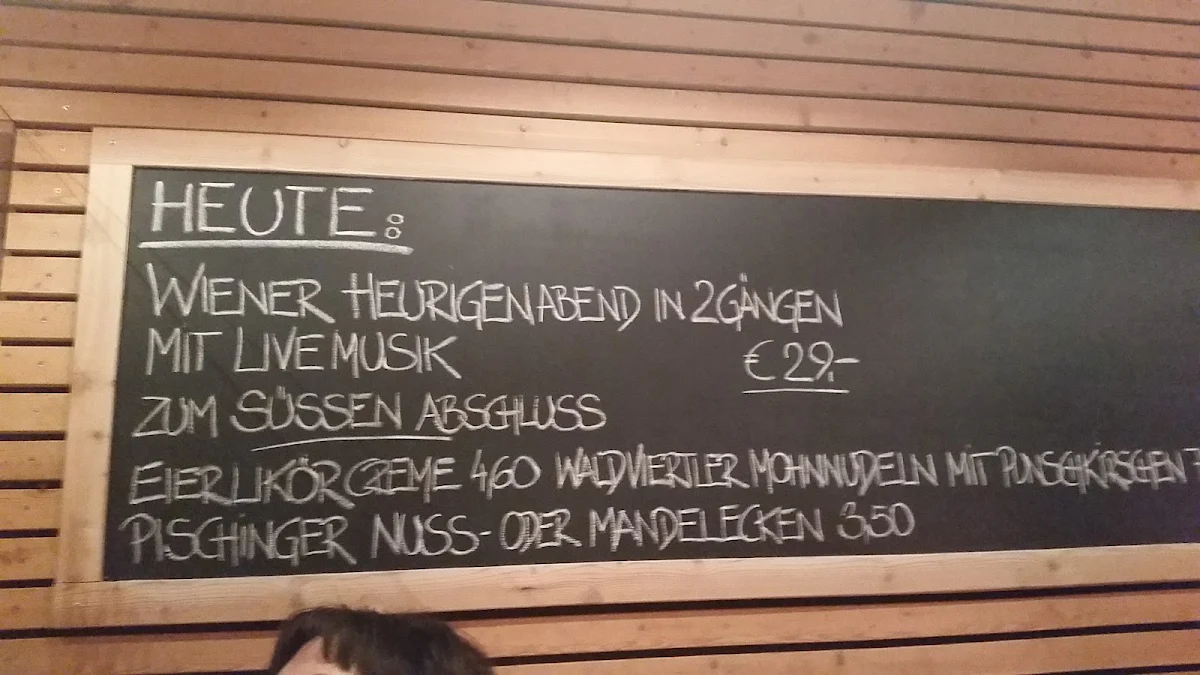 HEUTE:
WIENER HEURIGENABEND IN 2 GÄNGEN
MIT LIVEMUSIK € 29,-
ZUM SÜSSEN ABSCHLUSS
EIERLIKÖRCREME 4,60 WALDVIERTLER MOHNNUDELN MIT PUNSCHKIRSCHEN
PISCHINGER NUSS- ODER MANDELECKEN 3,50